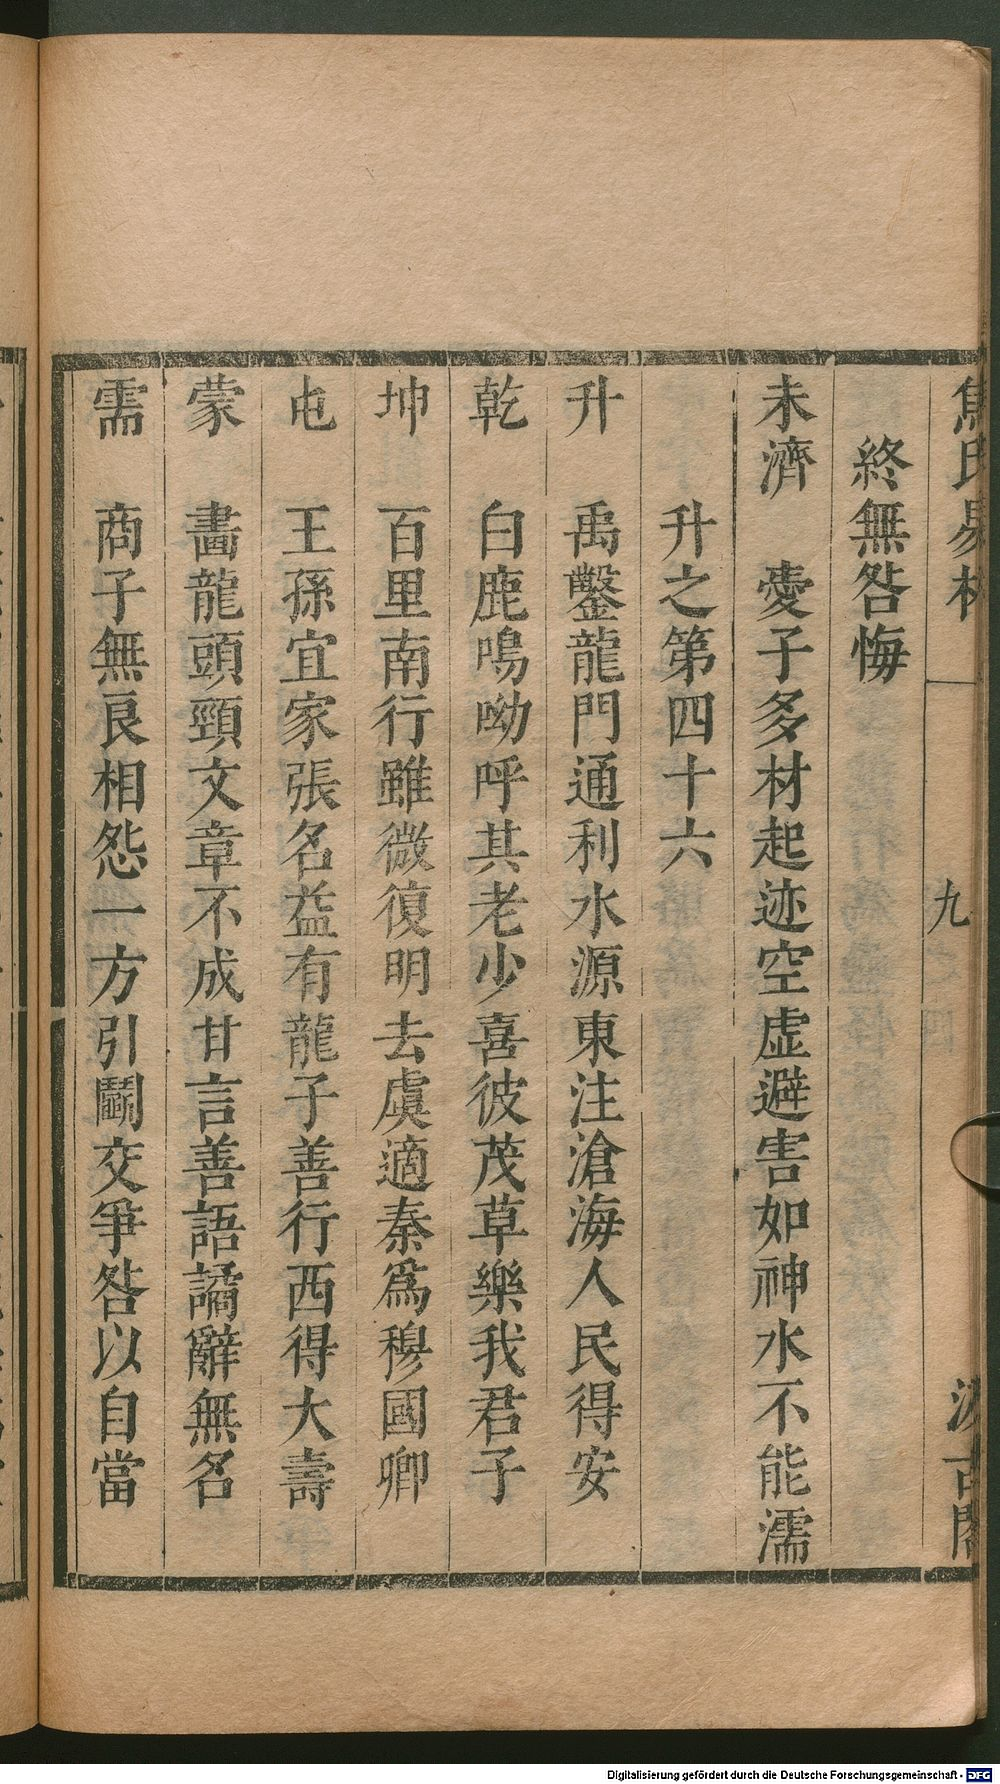 焦氏易林 九 汲古閣
終無咎悔
未濟 憂子多材起迹空虛避害如神水不能濡
升之第四十六
升 禹鑿龍門通利水源東注滄海人民得安
乾 白鹿鳴呦呼其老少喜彼茂草樂我君子
坤 百里南行雖微復明去虞適秦爲穆國卿
屯 王孫宜家張名益有龍子善行西得大壽
蒙 畫龍頭頸文章不成甘言善語譎辭無名
需 商子無良相怨一方引鬭交爭咎以自當
Digitalisierung gefördert durch die Deutsche Forschungsgemeinschaft - DFG